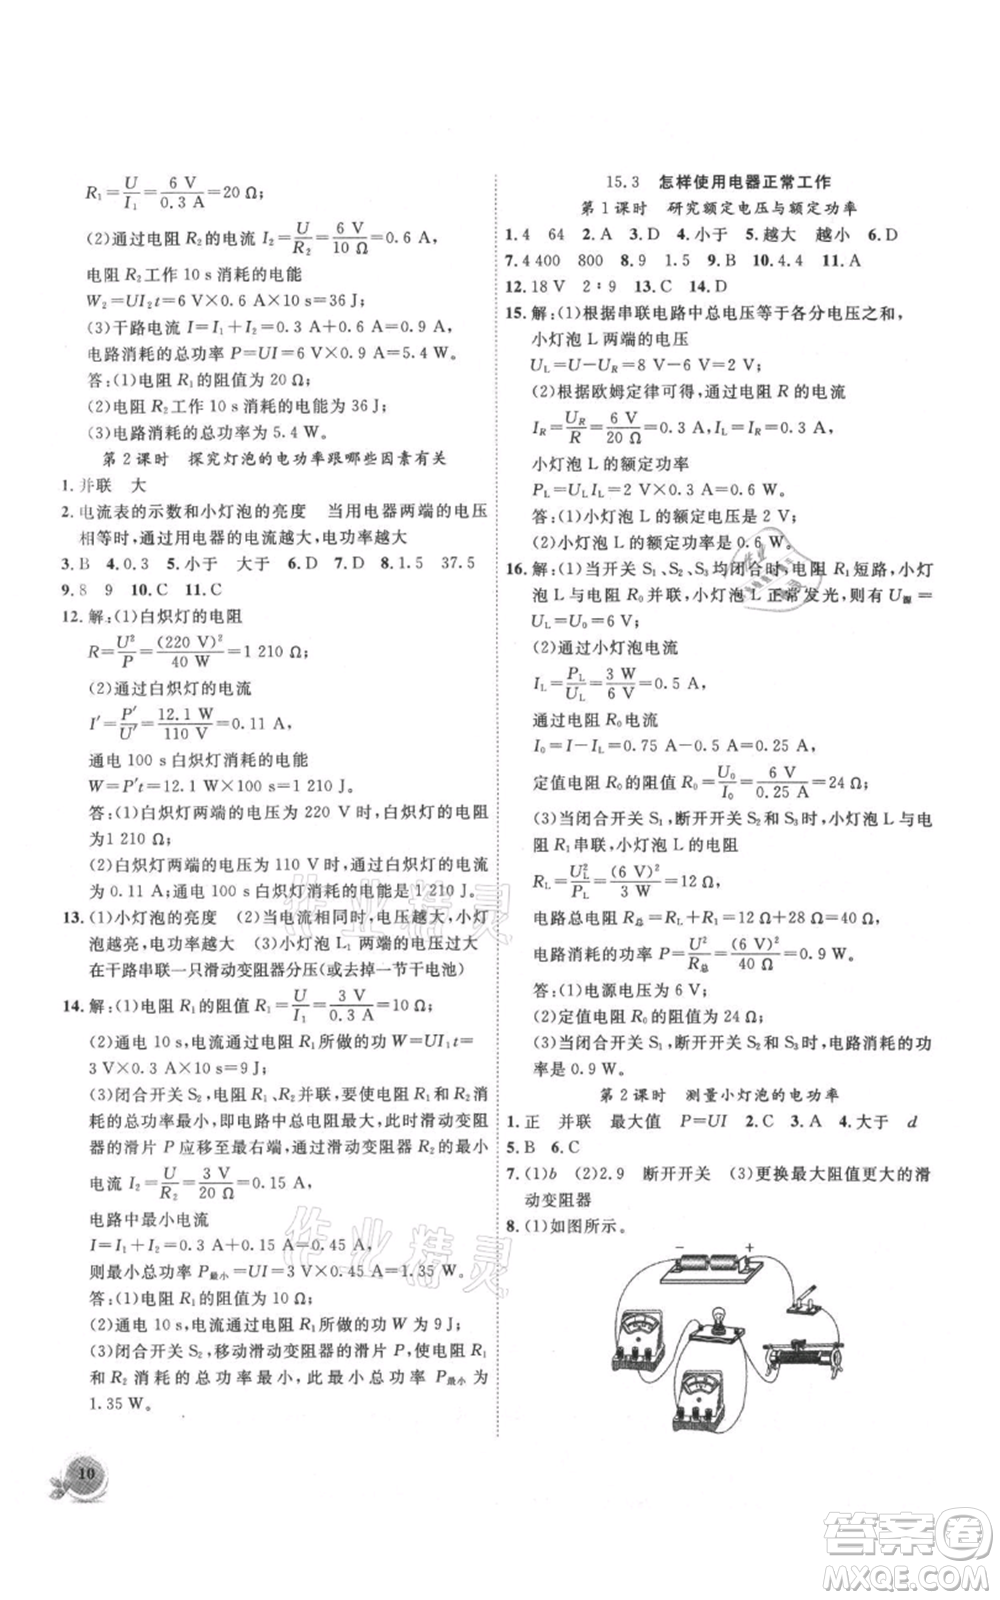 R₁=U/I₁=6 V/0.3 A=20 Ω；
(2)通过电阻 R₂的电流 I₂=U/R₂=6 V/10 Ω=0.6 A，
电阻 R₂工作 10 s 消耗的电能
W₂=UI₂t=6 V×0.6 A×10 s=36 J；
(3)干路电流 I=I₁+I₂=0.3 A+0.6 A=0.9 A，
电路消耗的总功率 P=UI=6 V×0.9 A=5.4 W。
答：(1)电阻 R₁的阻值为 20 Ω；
(2)电阻 R₂工作 10 s 消耗的电能为 36 J；
(3)电路消耗的总功率为 5.4 W。
第 2 课时 探究灯泡的电功率跟哪些因素有关
1.并联 大
2.电流表的示数和小灯泡的亮度 当用电器两端的电压
相等时，通过用电器的电流越大，电功率越大
3.B 4.0.3 5.小于 大于 6.D 7.D 8.1.5 37.5
9.8 9 10.C 11.C
12.解：(1)白炽灯的电阻
R=U²/P=(220 V)²/40 W=1 210 Ω；
(2)通过白炽灯的电流
I′=P′/U′=12.1 W/110 V=0.11 A，
通电 100 s 白炽灯消耗的电能
W=P′t=12.1 W×100 s=1 210 J；
答：(1)白炽灯两端的电压为 220 V时，白炽灯的电阻
为1 210 Ω；
(2)白炽灯两端的电压为 110 V 时，通过白炽灯的电流
为 0.11 A；通电 100 s 白炽灯消耗的电能是 1 210 J。
13.(1)小灯泡的亮度 (2)当电流相同时，电压越大，小灯
泡越亮，电功率越大 (3)小灯泡 L₁ 两端的电压过大
在干路串联一只滑动变阻器分压(或去掉一节干电池)
14.解：(1)电阻 R₁的阻值 R₁=U/I₁=3 V/0.3 A=10 Ω；
(2)通电 10 s，电流通过电阻 R₁所做的功 W=UI₁t=
3 V×0.3 A×10 s=9 J；
(3)闭合开关 S₂，电阻 R₁、R₂ 并联，要使电阻 R₁和 R₂
的总功率最小，即电路中总电阻最大，此时滑动变阻
器的滑片 P 应移至最右端，通过滑动变阻器的最小
电流 I₂=U/R₂=3 V/20 Ω=0.15 A，
电路中最小电流
I=I₁+I₂=0.3 A+0.15 A=0.45 A，
则最小总功率 P最小=UI=3 V×0.45 A=1.35 W。
答：(1)电阻 R₁的阻值为 10 Ω；
(2)通电 10 s，电流通过电阻 R₁所做的功 W为 9 J；
(3)闭合开关 S₂，移动滑动变阻器的滑片 P，使电阻 R₁
和 R₂ 消耗的总功率最小，则最小总功率 P最小 为
1.35 W。
10
15.3 怎样使用电器正常工作
第 1 课时 研究额定电压与额定功率
1.4 64 2.A 3.D 4.小于 5.越大 越小 6.D
7.4 400 800 8.9 1.5 9.B 10.4.4 11.A
12.18 V 2：9 13.C 14.D
15.解：(1)根据串联电路中总电压等于各分电压之和，
小灯泡 L 两端的电压
U_L=U−U_R=8 V−6 V=2 V；
(2)根据欧姆定律可得，通过电阻 R 的电流
I_R=U_R/R=6 V/20 Ω=0.3 A，
小灯泡 L 的额定功率
P_L=U_LI_L=2 V×0.3 A=0.6 W。
答：(1)小灯泡 L 的额定电压是 2 V；
(2)小灯泡 L 的额定功率是 0.6 W。
16.解：(1)当开关 S₁、S₂、S₃均闭合时，电阻 R₁短路，小灯
泡 L 与电阻 R₀并联，小灯泡 L 正常发光，则有 U源=
U_L=U₀=6 V；
(2)通过小灯泡电流
I_L=P_L/U_L=3 W/6 V=0.5 A，
通过电阻 R₀电流
I₀=I−I_L=0.75 A−0.5 A=0.25 A，
定值电阻 R₀的阻值 R₀=U₀/I₀=6 V/0.25 A=24 Ω；
(3)当闭合开关 S₁，断开开关 S₂、S₃时，小灯泡 L 与电
阻 R₁串联，小灯泡 L 的电阻
R_L=U_L²/P_L=(6 V)²/3 W=12 Ω，
电路总电阻 R总=R_L+R₁=12 Ω+28 Ω=40 Ω，
电路消耗的功率 P=U²/R总=(6 V)²/40 Ω=0.9 W。
答：(1)电源电压为 6 V；
(2)定值电阻 R₀的阻值为 24 Ω；
(3)当闭合开关 S₁，断开开关 S₂、S₃时，电路消耗的功
率是 0.9 W。
第 2 课时 测量小灯泡的电功率
1.正 并联 最大值 P=UI 2.C 3.A 4.大于 d
5.B 6.C
7.(1)b (2)2.9 断开开关 (3)更换最大阻值更大的滑
动变阻器
8.(1)如图所示。
− +
作业精灵
作业精灵
答案卷
MXQE.COM